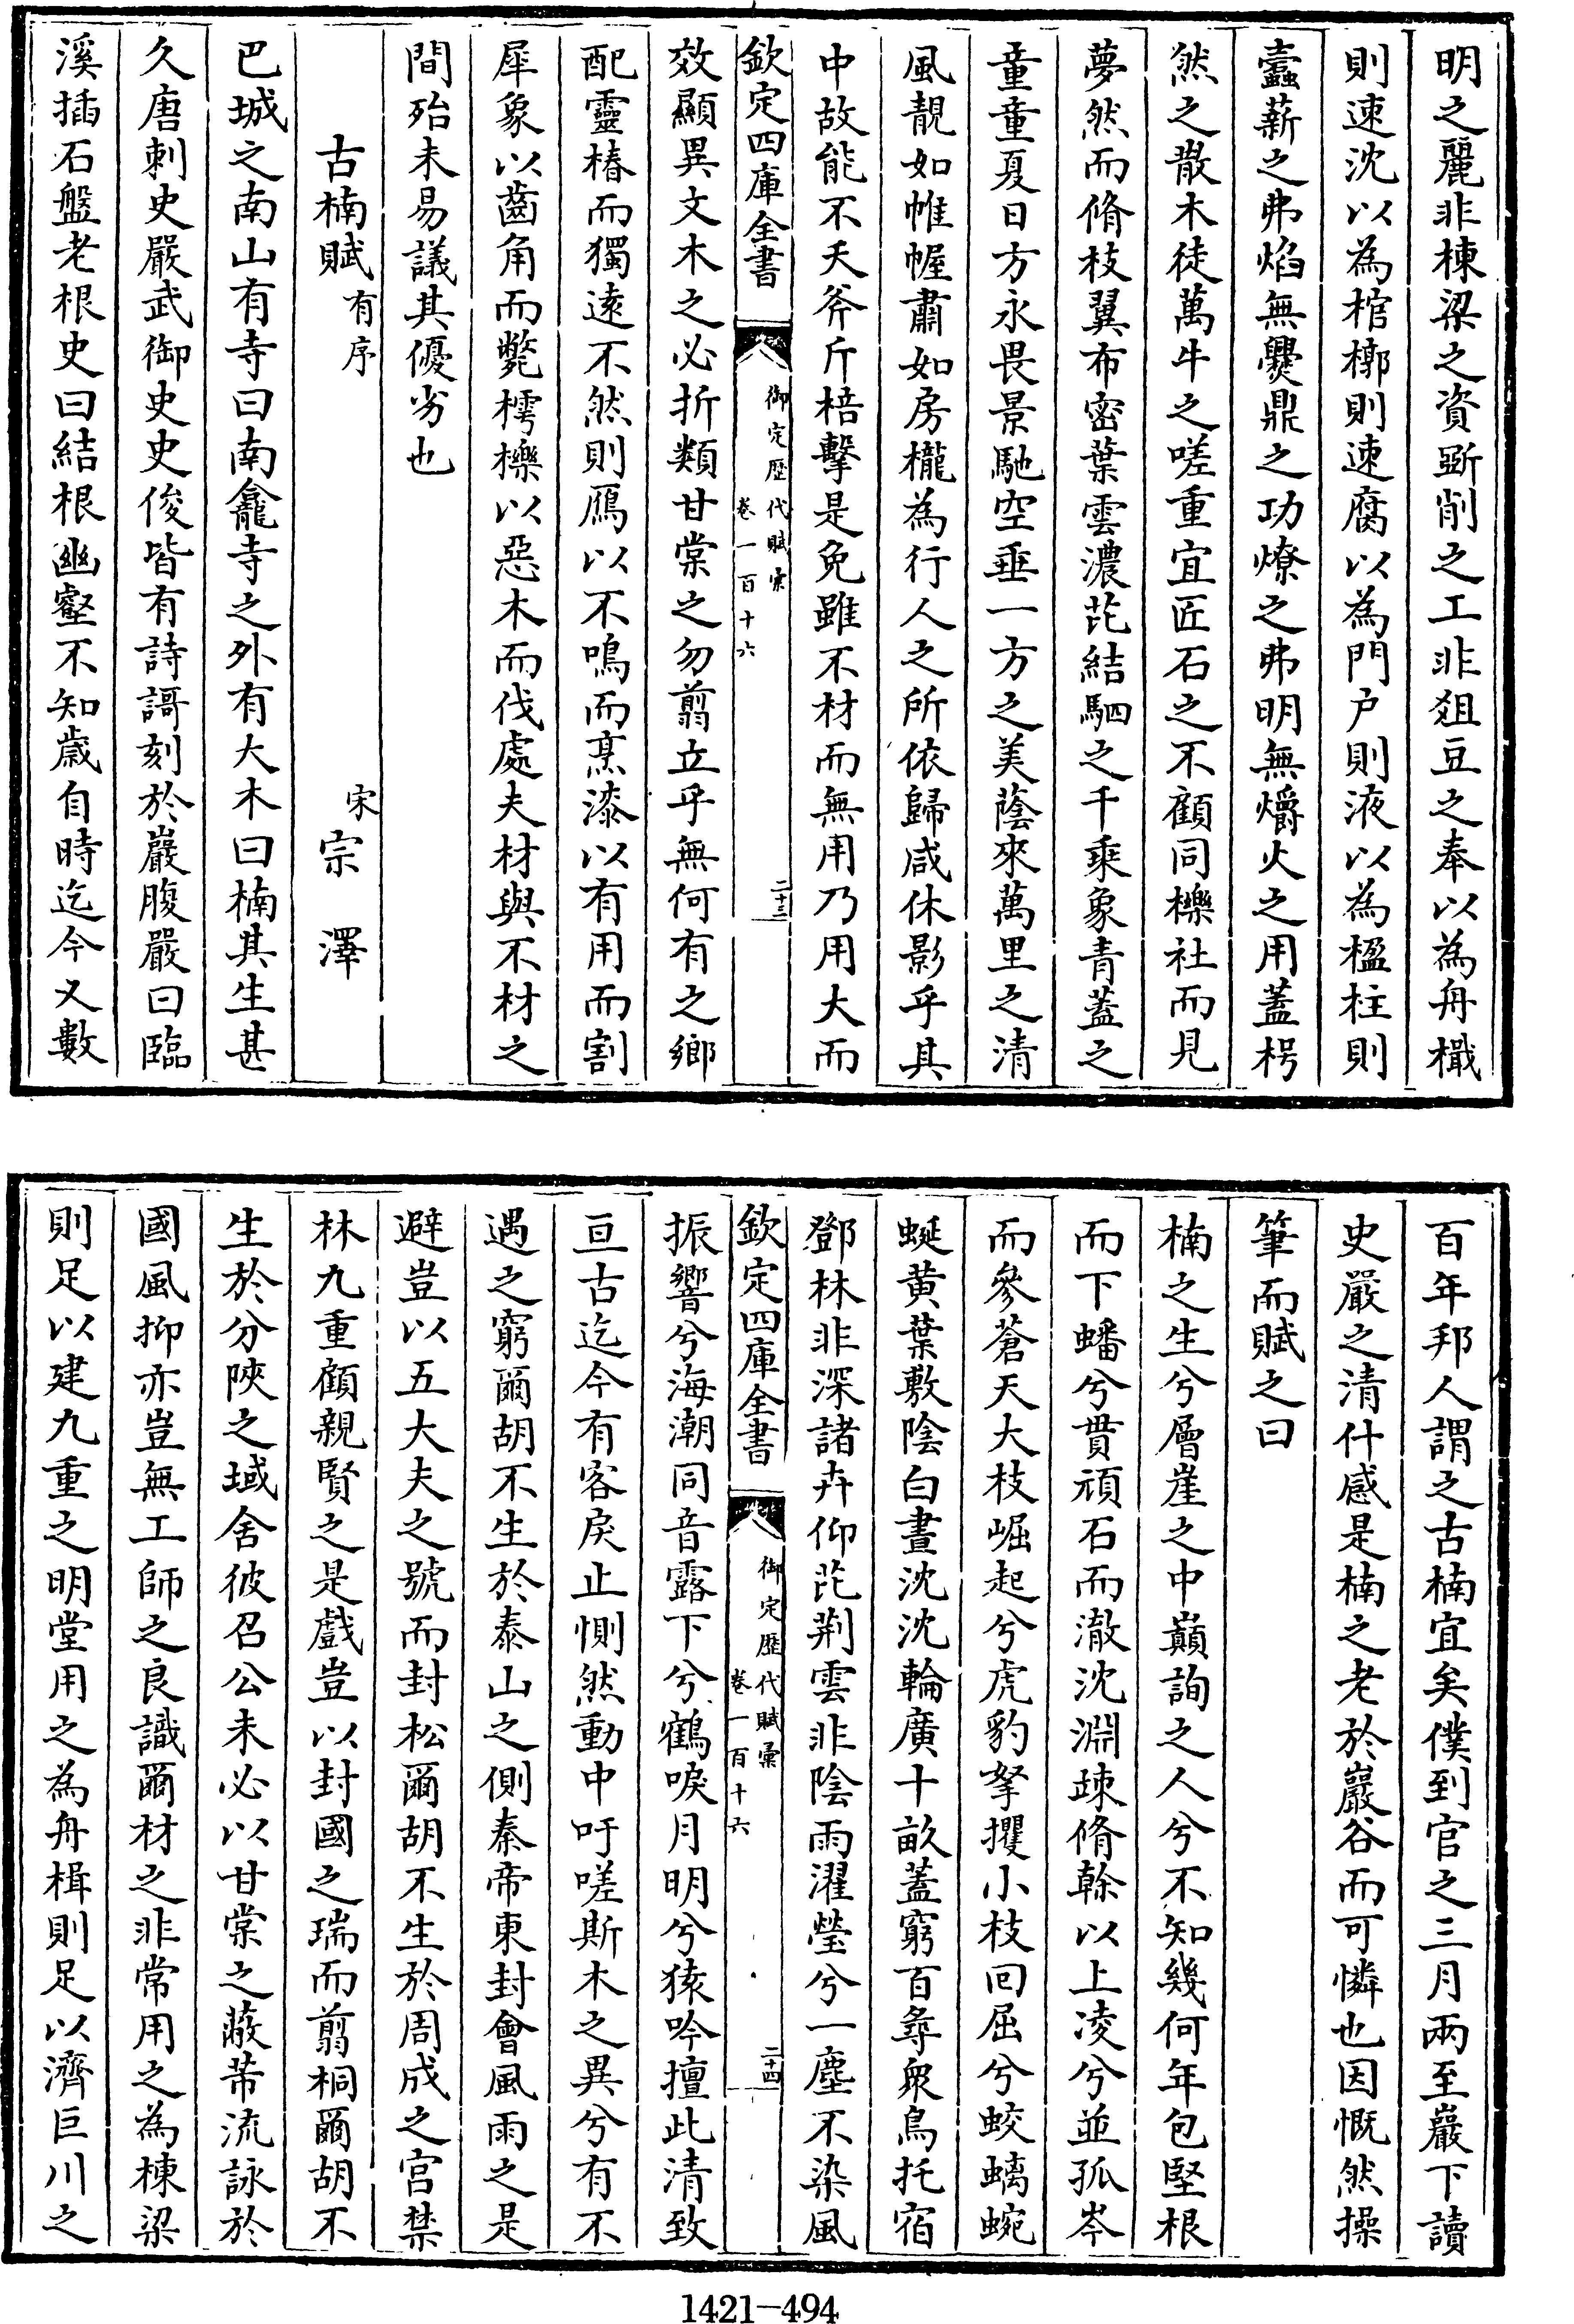 明之麗非棟梁之資斲削之工非爼豆之奉以為舟檝
則速沈以為棺槨則速腐以為門户則液以為楹柱則
蠧薪之弗焰無爨鼎之功燎之弗明無爝火之用蓋枵
然之散木徒萬牛之嗟重宜匠石之不顧同櫟社而見
夢然而脩枝翼布密葉雲濃芘結駟之千乘象青蓋之
童童夏日方永畏景馳空垂一方之美蔭來萬里之清
風靚如帷幄肅如房櫳為行人之所依歸咸休影乎其
中故能不夭斧斤棓擊是免雖不材而無用乃用大而
欽定四庫全書
御定歷代賦彙
卷一百十六
二十三
效顯異文木之必折類甘棠之勿翦立乎無何有之鄉
配靈椿而獨遠不然則鴈以不鳴而烹漆以有用而割
犀象以齒角而斃樗櫟以惡木而伐處夫材與不材之
間殆未易議其優劣也
古楠賦有序
宋宗澤
巴城之南山有寺曰南龕寺之外有大木曰楠其生甚
久唐刺史嚴武御史史俊皆有詩謌刻於巖腹嚴曰臨
溪插石盤老根史曰結根幽壑不知歲自時迄今又數
百年邦人謂之古楠宜矣僕到官之三月兩至巖下讀
史嚴之清什感是楠之老於巖谷而可憐也因慨然操
筆而賦之曰
楠之生兮層崖之中巔詢之人兮不知幾何年包堅根
而下蟠兮貫頑石而澈沈淵疎脩榦以上凌兮並孤岑
而參蒼天大枝崛起兮虎豹拏攫小枝回屈兮蛟螭蜿
蜒黄葉敷陰白晝沈沈輪廣十畝蓋窮百尋衆鳥托宿
鄧林非深諸卉仰芘荆雲非陰雨濯瑩兮一塵不染風
欽定四庫全書
御定歷代賦彙
卷一百十六
二十四
振響兮海潮同音露下兮鶴唳月明兮猿吟擅此清致
亘古迄今有客戾止惻然動中吁嗟斯木之異兮有不
遇之窮爾胡不生於泰山之側秦帝東封會風雨之是
避豈以五大夫之號而封松爾胡不生於周成之宫禁
林九重顧親賢之是戲豈以封國之瑞而翦桐爾胡不
生於分陜之域舍彼召公未必以甘棠之蔽芾流詠於
國風抑亦豈無工師之良識爾材之非常用之為棟梁
則足以建九重之明堂用之為舟楫則足以濟巨川之
1421-494